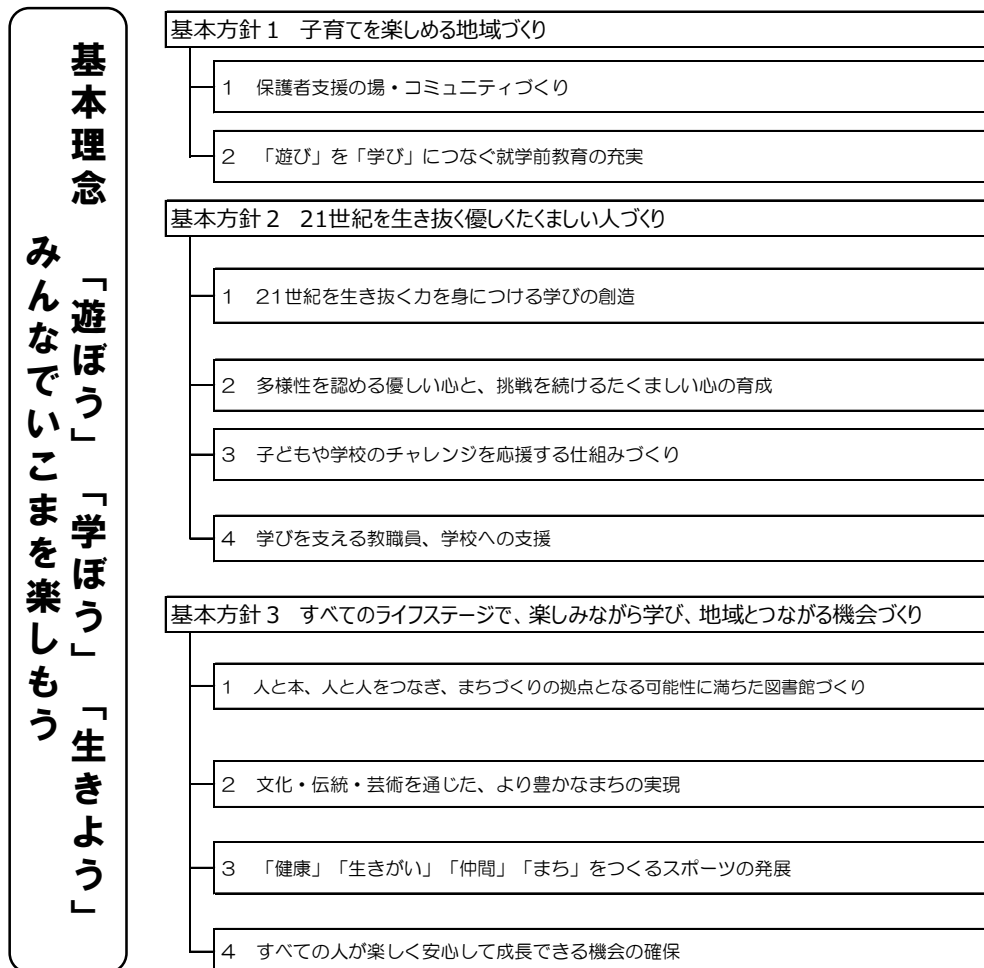 基本理念　「遊ぼう」「学ぼう」「生きよう」
みんなでいこまを楽しもう
基本方針１　子育てを楽しめる地域づくり
１　保護者支援の場・コミュニティづくり
２　「遊び」を「学び」につなぐ就学前教育の充実
基本方針２　21世紀を生き抜く優しくたくましい人づくり
１　21世紀を生き抜く力を身につける学びの創造
２　多様性を認める優しい心と、挑戦を続けるたくましい心の育成
３　子どもや学校のチャレンジを応援する仕組みづくり
４　学びを支える教職員、学校への支援
基本方針３　すべてのライフステージで、楽しみながら学び、地域とつながる機会づくり
１　人と本、人と人をつなぎ、まちづくりの拠点となる可能性に満ちた図書館づくり
２　文化・伝統・芸術を通じた、より豊かなまちの実現
３　「健康」「生きがい」「仲間」「まち」をつくるスポーツの発展
４　すべての人が楽しく安心して成長できる機会の確保